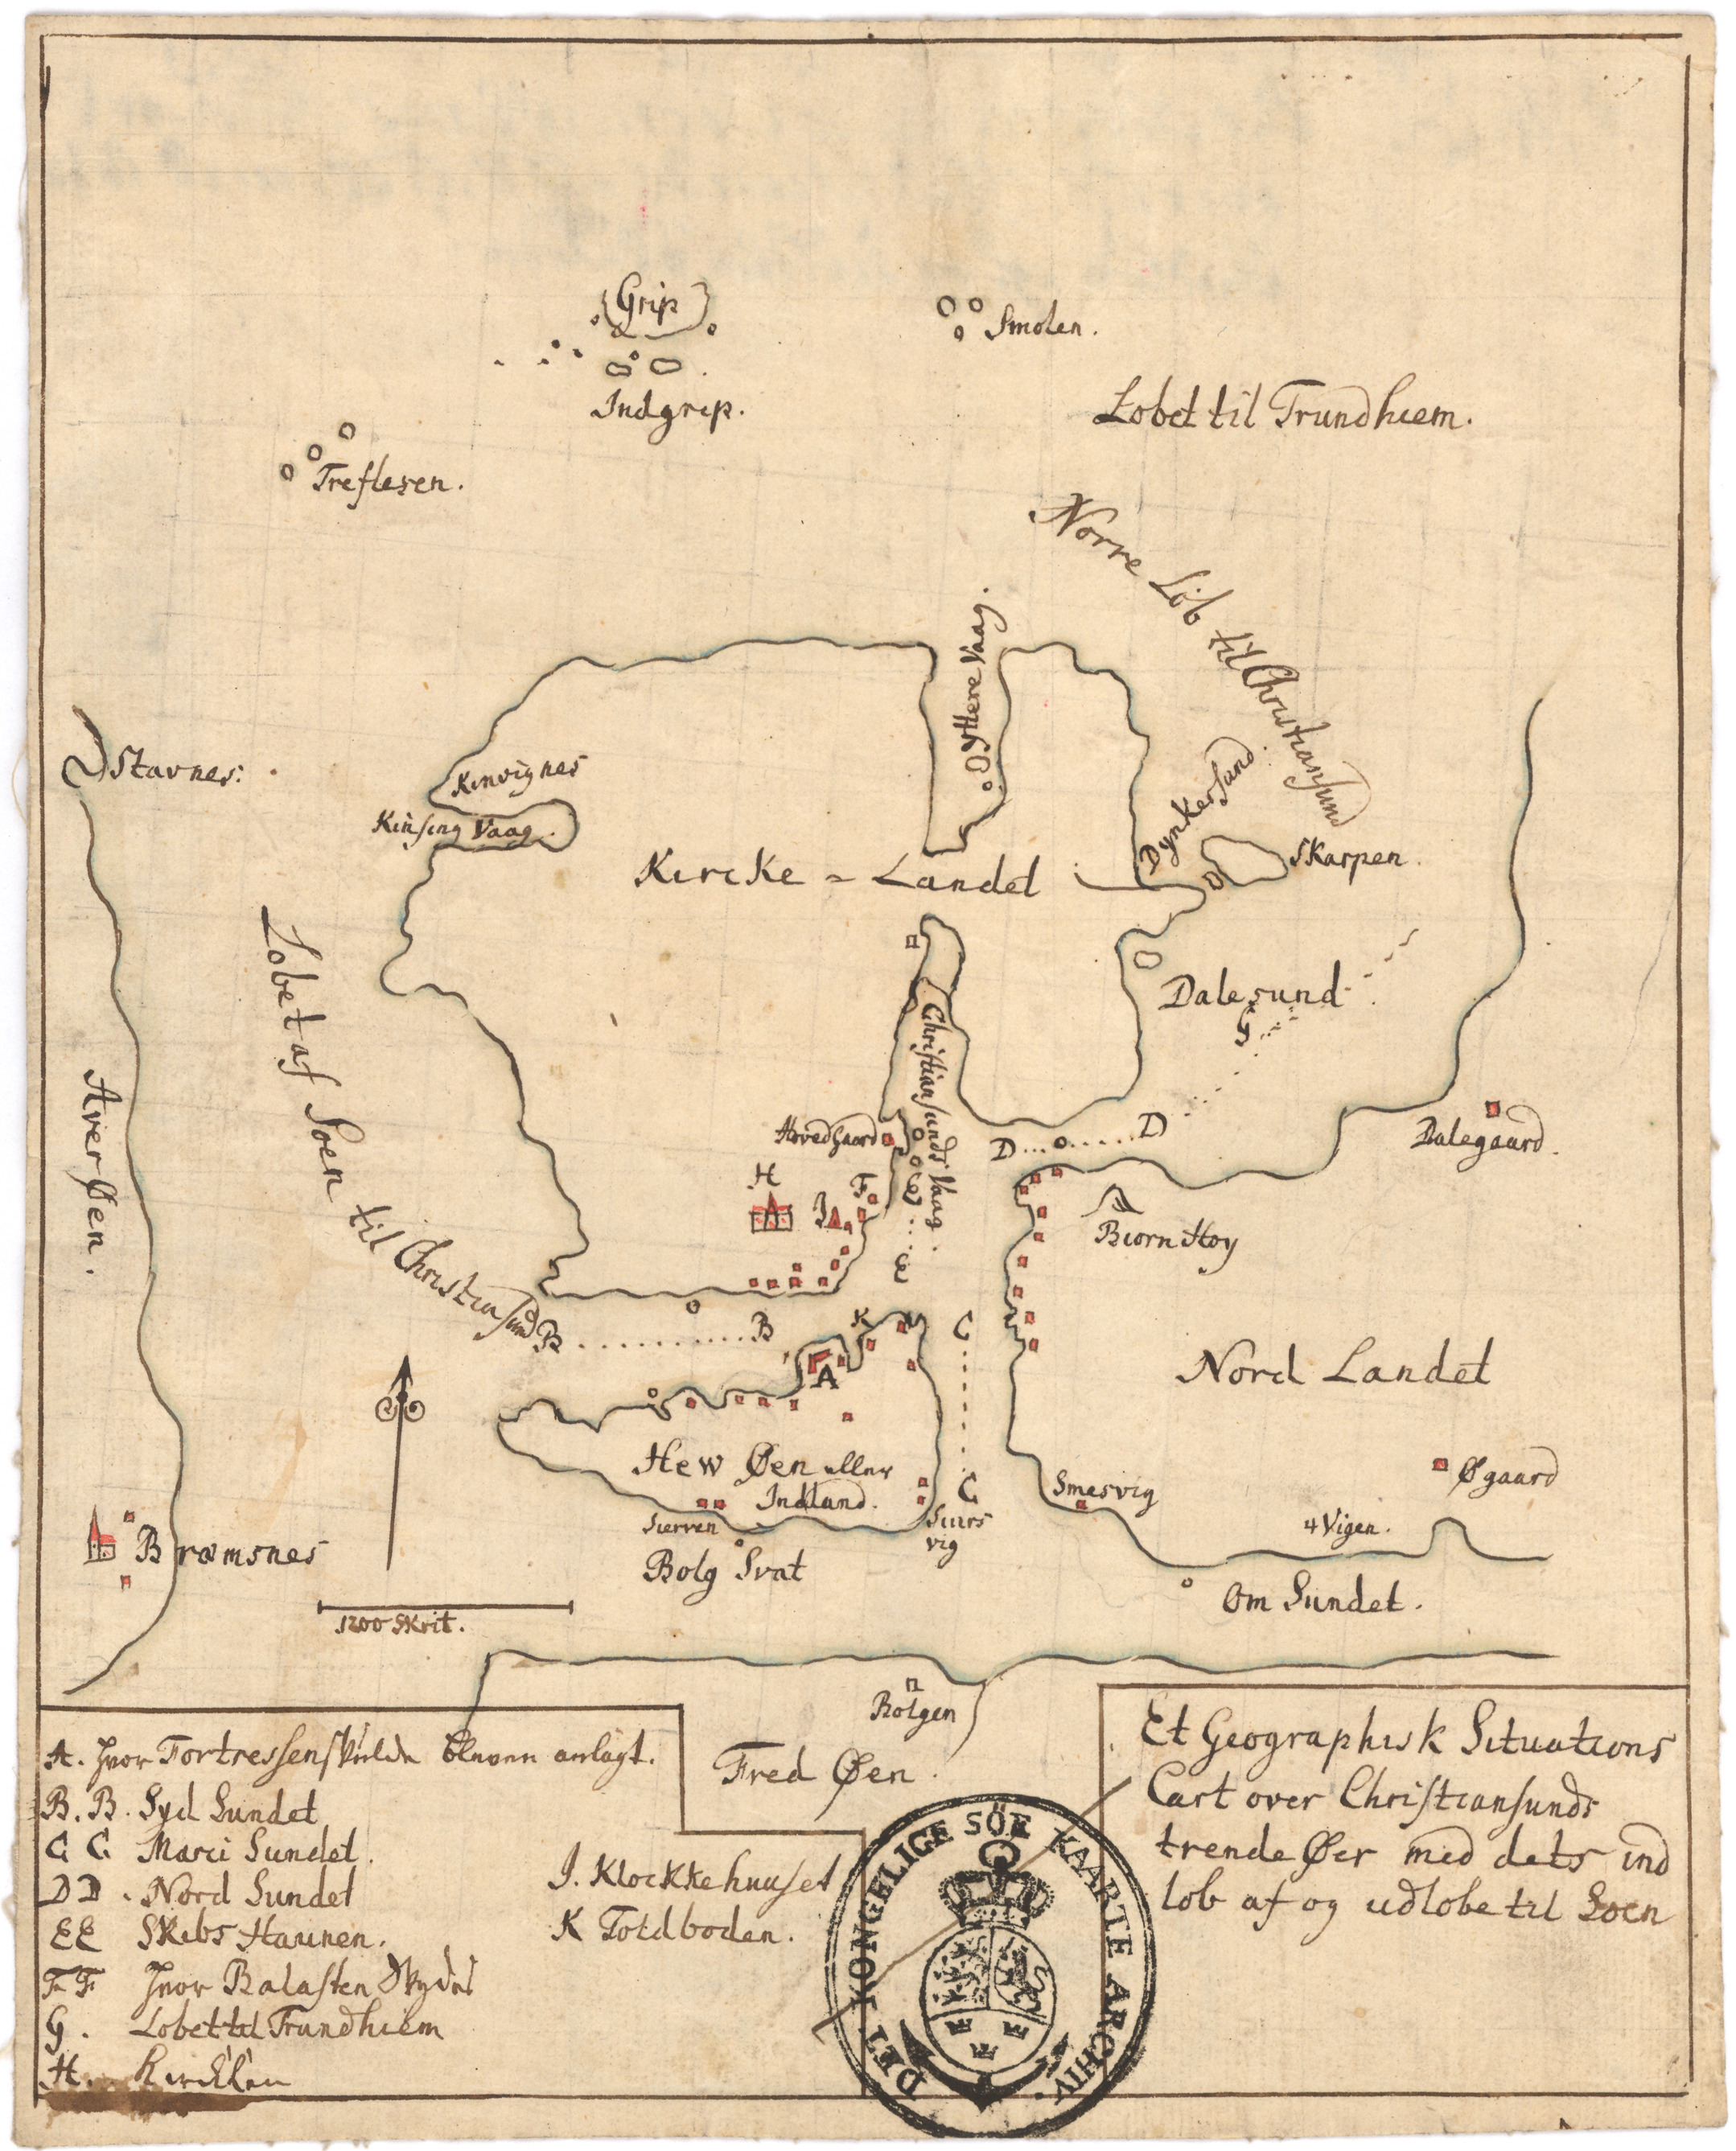 Grip
Indgrip.
Smolen.
Treflesen.
Lobet til Trundhiem.
Norre Löb til Christiansund
Ÿttere Vaag.
Stavnes:
Kinvignes
Kinsing Vaag.
Dynkersund
Skarpen.
Kircke = Landet
Lobet af Soen til Christiansund
Aver Øen.
Christiansunds Vaag.
Dalesund
G
Hoved Gaard
D
D
Dalegaard.
H
F
I
E
E
Biorn Hoy
B
B
K
C
A
Nord Landet
Hew Øen eller
Indland.
C
Smesvig
Øgaard
Sierren
vig
4 Vigen.
Bræmsnes
Bolg Svat
Om Sundet.
1200 Skrit.
Bolgen
Fred Øen.
A. hvor Fortressen skulde blevenn anlagt.
B. B. Syd Sundet
C C Marci Sundet.
D D. Nord Sundet
EE Skibs Haunen.
F F hvor Balasten Skydes
G. Lobet til Trundhiem
H. Kircken
I. Klockkehuuset
K Toldboden.
Et Geographisk Situations
Cart over Christiansunds
trende Øer med dets ind
lob af og udlobe til Soen
DET KONGELIGE SÖE KAARTE ARCHIV.